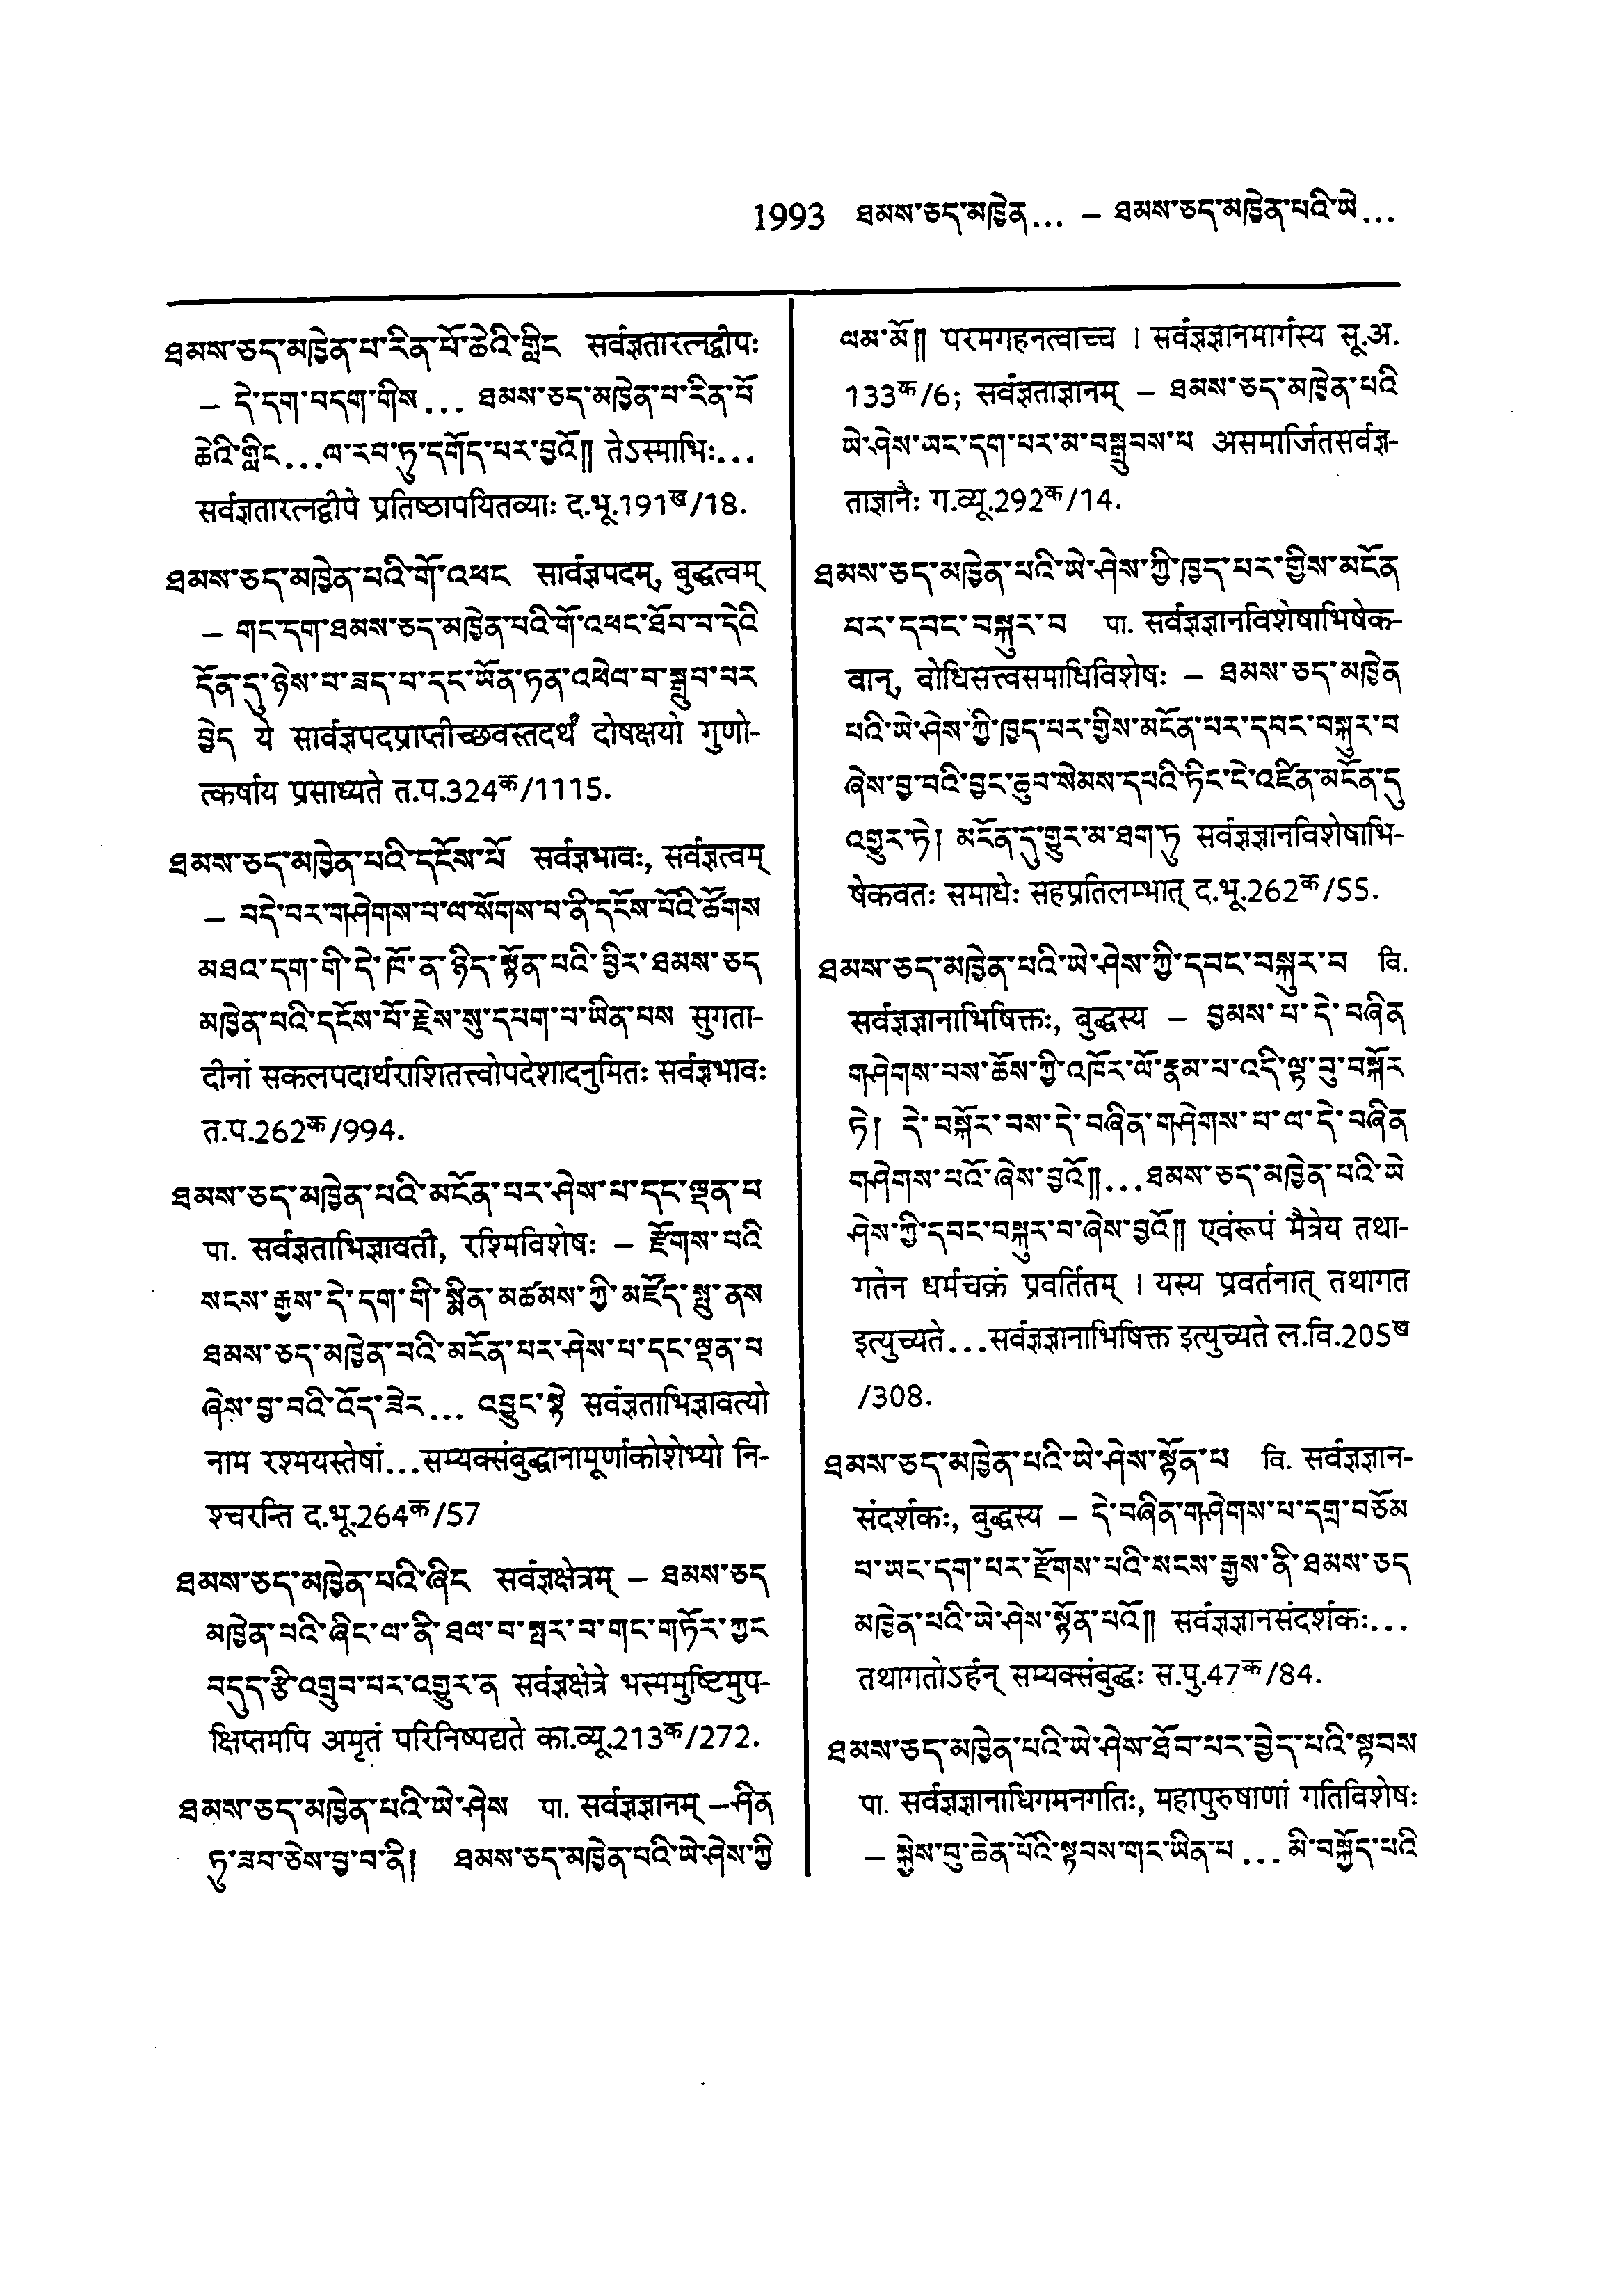 1993 ཐམས་ཅད་མཁྱེན... – ཐམས་ཅད་མཁྱེན་པའི་ཡེ...
ཐམས་ཅད་མཁྱེན་པ་རིན་པོ་ཆེའི་གླིང सर्वज्ञतारत्नद्वीपः
– དེ་དག་བདག་གིས... ཐམས་ཅད་མཁྱེན་པ་རིན་པོ
ཆེའི་གླིང...ལ་རབ་ཏུ་དགོད་པར་བྱའོ༎ तेऽस्माभिः...
सर्वज्ञतारत्नद्वीपे प्रतिष्ठापयितव्याः द.भू.191ख/18.
ཐམས་ཅད་མཁྱེན་པའི་གོ་འཕང सार्वज्ञपदम्, बुद्धत्वम्
– གང་དག་ཐམས་ཅད་མཁྱེན་པའི་གོ་འཕང་ཐོབ་པ་དེའི
དོན་དུ་ཉེས་པ་ཟད་པ་དང་ཡོན་ཏན་འཕེལ་བ་སྒྲུབ་པར
བྱེད ये सार्वज्ञपदप्राप्तीच्छवस्तदर्थं दोषक्षयो गुणो-
त्कर्षाय प्रसाध्यते त.प.324क/1115.
ཐམས་ཅད་མཁྱེན་པའི་དངོས་པོ सर्वज्ञभावः, सर्वज्ञत्वम्
– བདེ་བར་གཤེགས་པ་ལ་སོགས་པ་ནི་དངོས་པོའི་ཚོགས
མཐའ་དག་གི་དེ་ཁོ་ན་ཉིད་སྟོན་པའི་ཕྱིར་ཐམས་ཅད
མཁྱེན་པའི་དངོས་པོ་རྗེས་སུ་དཔག་པ་ཡིན་པས सुगता-
दीनां सकलपदार्थराशितत्त्वोपदेशादनुमितः सर्वज्ञभावः
त.प.262क/994.
ཐམས་ཅད་མཁྱེན་པའི་མངོན་པར་ཤེས་པ་དང་ལྡན་པ
पा. सर्वज्ञताभिज्ञावती, रश्मिविशेषः – རྫོགས་པའི
སངས་རྒྱས་དེ་དག་གི་སྨིན་མཚམས་ཀྱི་མཛོད་སྤུ་ནས
ཐམས་ཅད་མཁྱེན་པའི་མངོན་པར་ཤེས་པ་དང་ལྡན་པ
ཞེས་བྱ་བའི་འོད་ཟེར... འབྱུང་སྟེ सर्वज्ञताभिज्ञावत्यो
नाम रश्मयस्तेषां...सम्यक्संबुद्धानामूर्णाकोशेभ्यो नि-
श्चरन्ति द.भू.264क/57
ཐམས་ཅད་མཁྱེན་པའི་ཞིང सर्वज्ञक्षेत्रम् – ཐམས་ཅད
མཁྱེན་པའི་ཞིང་ལ་ནི་ཐལ་བ་སྤར་བ་གང་གཏོར་ཀྱང
བདུད་རྩི་འགྲུབ་པར་འགྱུར་ན सर्वज्ञक्षेत्रे भस्ममुष्टिमुप-
क्षिप्तमपि अमृतं परिनिष्पद्यते का.व्यू.213क/272.
ཐམས་ཅད་མཁྱེན་པའི་ཡེ་ཤེས पा. सर्वज्ञज्ञानम् –ཤིན
ཏུ་ཟབ་ཅེས་བྱ་བ་ནི། ཐམས་ཅད་མཁྱེན་པའི་ཡེ་ཤེས་ཀྱི
ལམ་མོ༎ परमगहनत्वाच्च । सर्वज्ञज्ञानमार्गस्य सू.अ.
133क/6; सर्वज्ञताज्ञानम् – ཐམས་ཅད་མཁྱེན་པའི
ཡེ་ཤེས་ཡང་དག་པར་མ་བསྒྲུབས་པ असमार्जितसर्वज्ञ-
ताज्ञानैः ग.व्यू.292क/14.
ཐམས་ཅད་མཁྱེན་པའི་ཡེ་ཤེས་ཀྱི་ཁྱད་པར་གྱིས་མངོན
པར་དབང་བསྐུར་བ पा. सर्वज्ञज्ञानविशेषाभिषेक-
वान्, बोधिसत्त्वसमाधिविशेषः – ཐམས་ཅད་མཁྱེན
པའི་ཡེ་ཤེས་ཀྱི་ཁྱད་པར་གྱིས་མངོན་པར་དབང་བསྐུར་བ
ཞེས་བྱ་བའི་བྱང་ཆུབ་སེམས་དཔའི་ཏིང་ངེ་འཛིན་མངོན་དུ
འགྱུར་ཏེ། མངོན་དུ་གྱུར་མ་ཐག་ཏུ सर्वज्ञज्ञानविशेषाभि-
षेकवतः समाधेः सहप्रतिलम्भात् द.भू.262क/55.
ཐམས་ཅད་མཁྱེན་པའི་ཡེ་ཤེས་ཀྱི་དབང་བསྐུར་བ वि.
सर्वज्ञज्ञानाभिषिक्तः, बुद्धस्य – བྱམས་པ་དེ་བཞིན
གཤེགས་པས་ཆོས་ཀྱི་འཁོར་ལོ་རྣམ་པ་འདི་ལྟ་བུ་བསྐོར
ཏེ། དེ་བསྐོར་བས་དེ་བཞིན་གཤེགས་པ་ལ་དེ་བཞིན
གཤེགས་པའོ་ཞེས་བྱའོ༎...ཐམས་ཅད་མཁྱེན་པའི་ཡེ
ཤེས་ཀྱི་དབང་བསྐུར་བ་ཞེས་བྱའོ༎ एवंरूपं मैत्रेय तथा-
गतेन धर्मचक्रं प्रवर्तितम् । यस्य प्रवर्तनात् तथागत
इत्युच्यते...सर्वज्ञज्ञानाभिषिक्त इत्युच्यते ल.वि.205ख
/308.
ཐམས་ཅད་མཁྱེན་པའི་ཡེ་ཤེས་སྟོན་པ वि. सर्वज्ञज्ञान-
संदर्शकः, बुद्धस्य – དེ་བཞིན་གཤེགས་པ་དགྲ་བཅོམ
པ་ཡང་དག་པར་རྫོགས་པའི་སངས་རྒྱས་ནི་ཐམས་ཅད
མཁྱེན་པའི་ཡེ་ཤེས་སྟོན་པའོ༎ सर्वज्ञज्ञानसंदर्शकः...
तथागतोऽर्हन् सम्यक्संबुद्धः स.पु.47क/84.
ཐམས་ཅད་མཁྱེན་པའི་ཡེ་ཤེས་ཐོབ་པར་བྱེད་པའི་སྟབས
पा. सर्वज्ञज्ञानाधिगमनगतिः, महापुरुषाणां गतिविशेषः
– སྐྱེས་བུ་ཆེན་པོའི་སྟབས་གང་ཡིན་པ...མི་བསྐྱོད་པའི